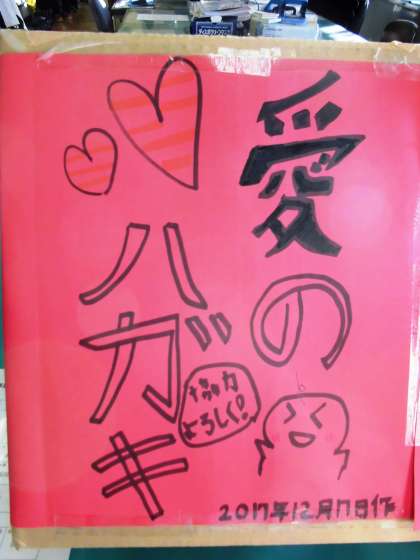 愛の
ハガキ
協力
よろしく!
2017年12月17日作